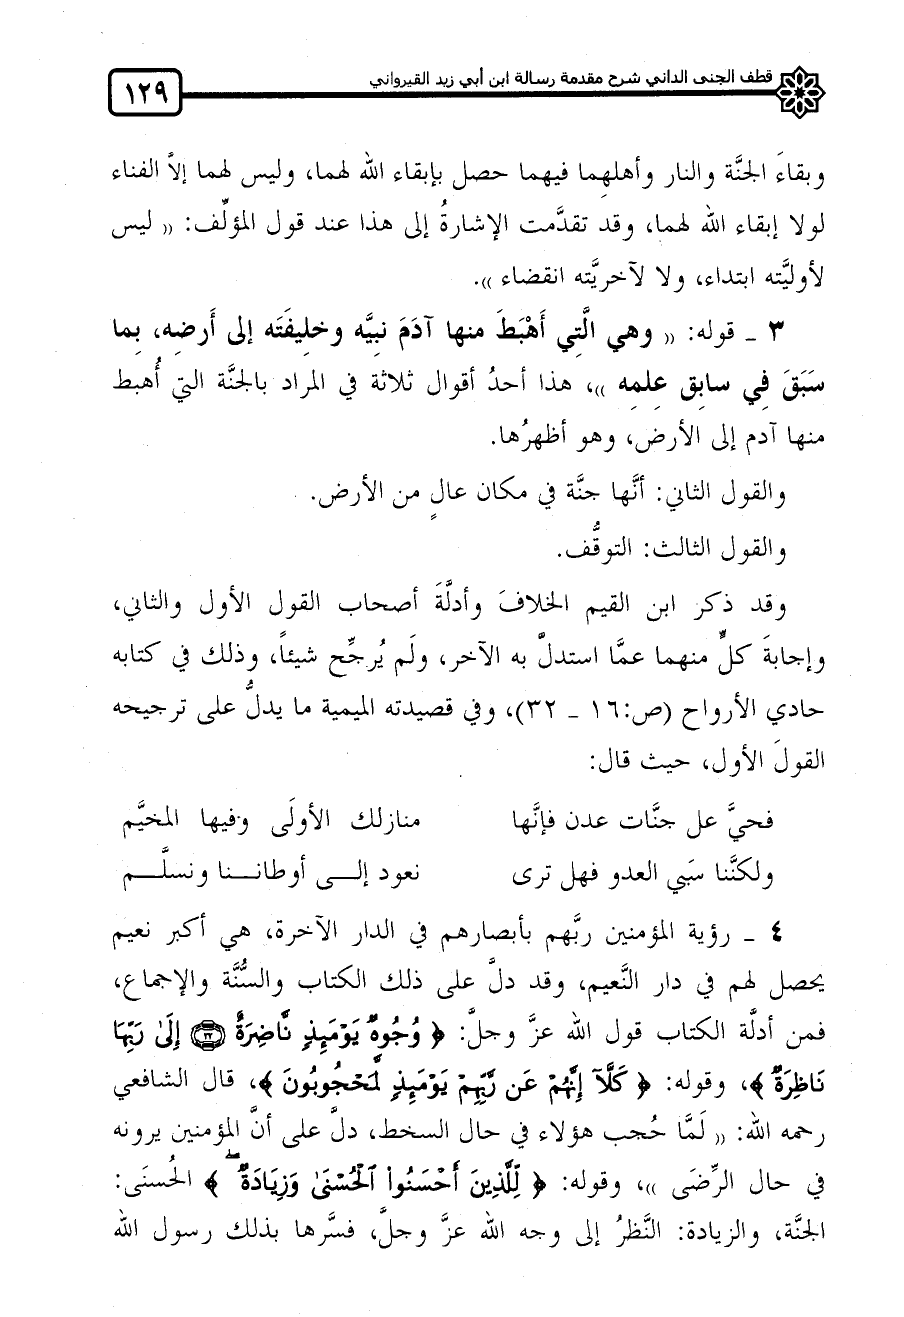 قطف الجنى الداني شرح مقدمة رسالة ابن أبي زيد القيرواني
١٢٩
وبقاءَ الجنَّة والنار وأهلِهما فيهما حصل بإبقاء الله لهما، وليس لهما إلاَّ الفناء
لولا إبقاء الله لهما، وقد تقدَّمت الإشارةُ إلى هذا عند قول المؤلِّف: (( ليس
لأوليَّته ابتداء، ولا لآخريَّته انقضاء )).
٣ ـ قوله: (( وهي الَّتِي أَهْبَطَ منها آدَمَ نبيَّه وخليفَتَه إلى أَرضِه، بِما
سَبَقَ فِي سابِق عِلمِه ))، هذا أحدُ أقوال ثلاثة في المراد بالجنَّة التي أُهبط
منها آدم إلى الأرض، وهو أظهرُها.
والقول الثاني: أنَّها جنَّة في مكان عالٍ من الأرض.
والقول الثالث: التوقُّف.
وقد ذكر ابن القيم الخلافَ وأدلَّةَ أصحاب القول الأول والثاني،
وإجابةَ كلٍّ منهما عمَّا استدلَّ به الآخر، ولَم يُرجِّح شيئاً، وذلك في كتابه
حادي الأرواح (ص:١٦ ـ ٣٢)، وفي قصيدته الميمية ما يدلُّ على ترجيحه
القولَ الأول، حيث قال:
فحيَّ على جنَّات عدن فإنَّها منازلك الأولَى وفيها المخيَّم
ولكنَّنا سَبَي العدو فهل ترى نعود إلـى أوطانـنا ونسلَّـم
٤ ـ رؤية المؤمنين ربَّهم بأبصارهم في الدار الآخرة، هي أكبر نعيم
يحصل لهم في دار النَّعيم، وقد دلَّ على ذلك الكتاب والسُّنَّة والإجماع،
فمن أدلَّة الكتاب قول الله عزَّ وجلَّ: ﴿ وُجُوهٌ يَوْمَئِذٍ نَّاضِرَةٌ ۝٢٢ إِلَىٰ رَبِّهَا
نَاظِرَةٌ ﴾، وقوله: ﴿ كَلَّآ إِنَّهُمْ عَن رَّبِّهِمْ يَوْمَئِذٍ لَّمَحْجُوبُونَ ﴾، قال الشافعي
رحمه الله: (( لَمَّا حُجب هؤلاء في حال السخط، دلَّ على أنَّ المؤمنين يرونه
في حال الرِّضَى ))، وقوله: ﴿ لِّلَّذِينَ أَحْسَنُوا۟ ٱلْحُسْنَىٰ وَزِيَادَةٌۖ ﴾ الحُسنَى:
الجنَّة، والزيادة: النَّظرُ إلى وجه الله عزَّ وجلَّ، فسَّرها بذلك رسول الله